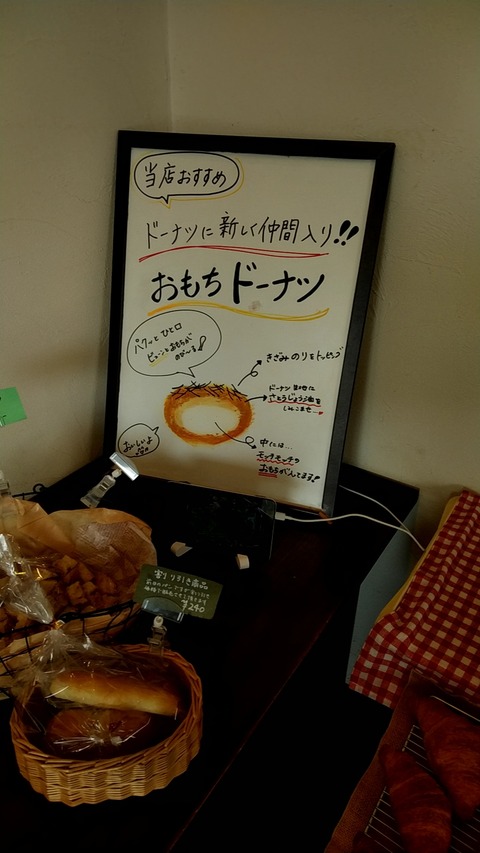 当店おすすめ
ドーナツに新しく仲間入り!!
おもちドーナツ
パクッとひと口
ビヨーンとおもちが
のび〜る
きざみのりをトッピング
ドーナツ生地に
さとうじょう油を
しみこませ…
おいしいよ
中には…
モッチモッチの
おもちがんてます!
割り引き商品
前日のパンですが
¥240